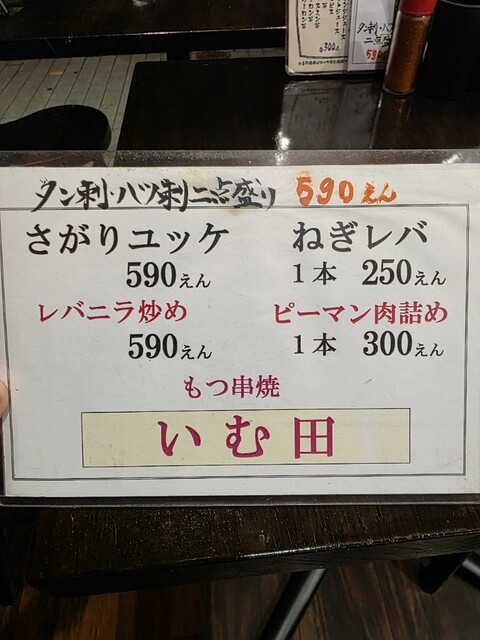 タン刺・ハツ刺二点盛り 590えん
さがりユッケ
590えん
ねぎレバ
1本 250えん
レバニラ炒め
590えん
ピーマン肉詰め
1本 300えん
もつ串焼
いむ田
タン刺・ハツ
二点盛
590